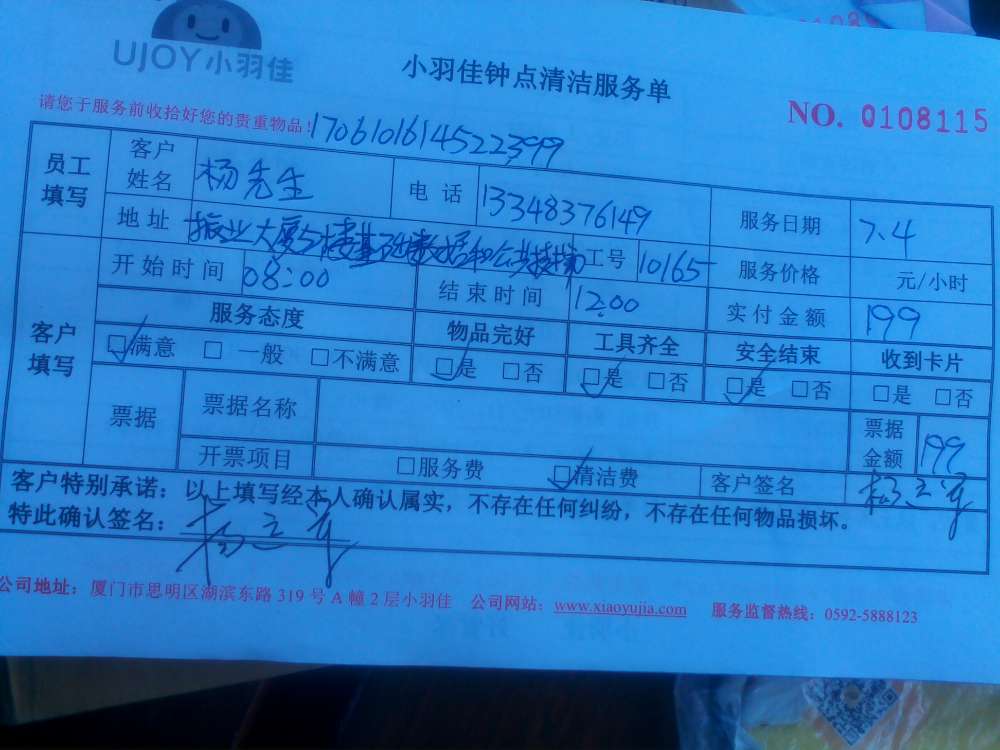 UJOY小羽佳
小羽佳钟点清洁服务单
请您于服务前收拾好您的贵重物品!
NO. 0108115
17061016145223999
员工填写 客户姓名 杨先生 电话 13348376149 服务日期 7.4
地址 振业大厦 工号 10165 服务价格 元/小时
客户填写 开始时间 08:00 结束时间 12:00 实付金额 199
服务态度 物品完好 工具齐全 安全结束 收到卡片
☑满意 □一般 □不满意 ☑是 □否 ☑是 □否 ☑是 □否 □是 □否
票据 票据名称 票据金额 199
开票项目 □服务费 ☑清洁费 客户签名
客户特别承诺：以上填写经本人确认属实，不存在任何纠纷，不存在任何物品损坏。
特此确认签名：
公司地址：厦门市思明区湖滨东路 319 号 A 幢 2 层小羽佳 公司网站：www.xiaoyujia.com 服务监督热线：0592-5888123